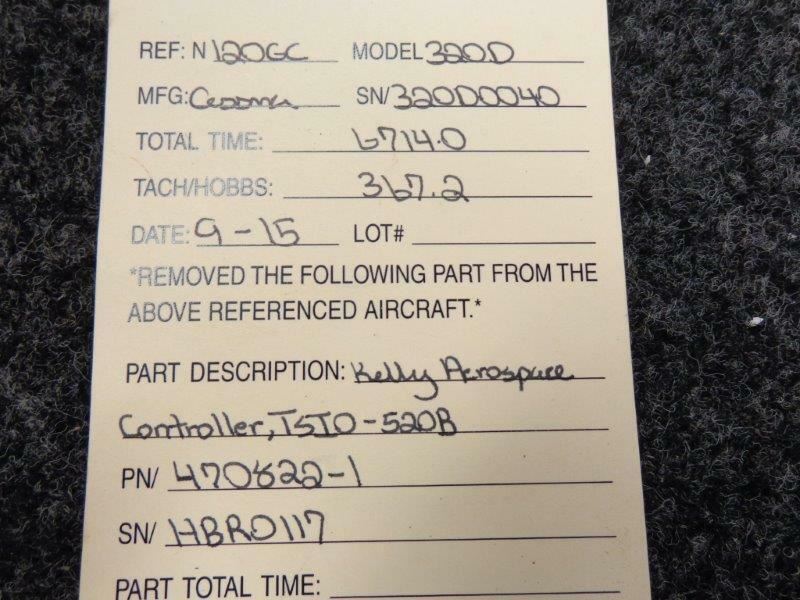 REF: N 120GC MODEL 320D
MFG: Cessna SN/ 320D0040
TOTAL TIME: 6714.0
TACH/HOBBS: 367.2
DATE: 9-15 LOT#
*REMOVED THE FOLLOWING PART FROM THE
ABOVE REFERENCED AIRCRAFT.*
PART DESCRIPTION: Kelly Aerospace
Controller, TSIO-520B
PN/ 470822-1
SN/ HBR0117
PART TOTAL TIME: